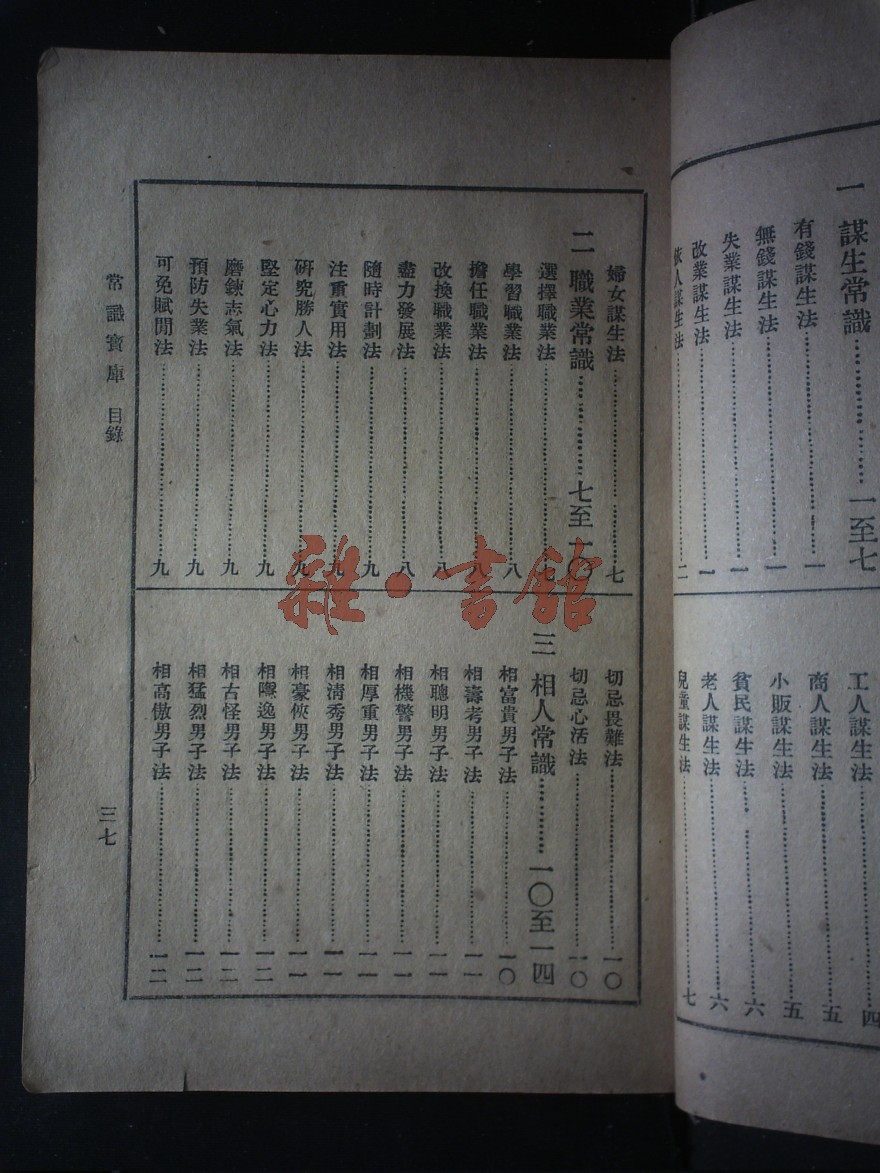 一 謀生常識……一至七
有錢謀生法……一
無錢謀生法……一
失業謀生法……一
改業謀生法……一
人謀生法……二
工人謀生法……四
商人謀生法……五
小販謀生法……五
貧民謀生法……六
老人謀生法……六
兒童謀生法……七
婦女謀生法……七
二 職業常識……七至一〇
選擇職業法……七
學習職業法……八
擔任職業法……八
改換職業法……八
盡力發展法……八
隨時計劃法……九
注重實用法……九
研究勝人法……九
堅定心力法……九
磨鍊志氣法……九
預防失業法……九
可免賦閒法……九
切忌畏難法……一〇
切忌心活法……一〇
三 相人常識……一〇至一四
相富貴男子法……一〇
相壽考男子法……一一
相聰明男子法……一一
相機警男子法……一一
相厚重男子法……一一
相清秀男子法……一一
相豪俠男子法……一一
相隱逸男子法……一二
相古怪男子法……一二
相猛烈男子法……一二
相高傲男子法……一二
常識寶庫 目錄
三七
雜·書館